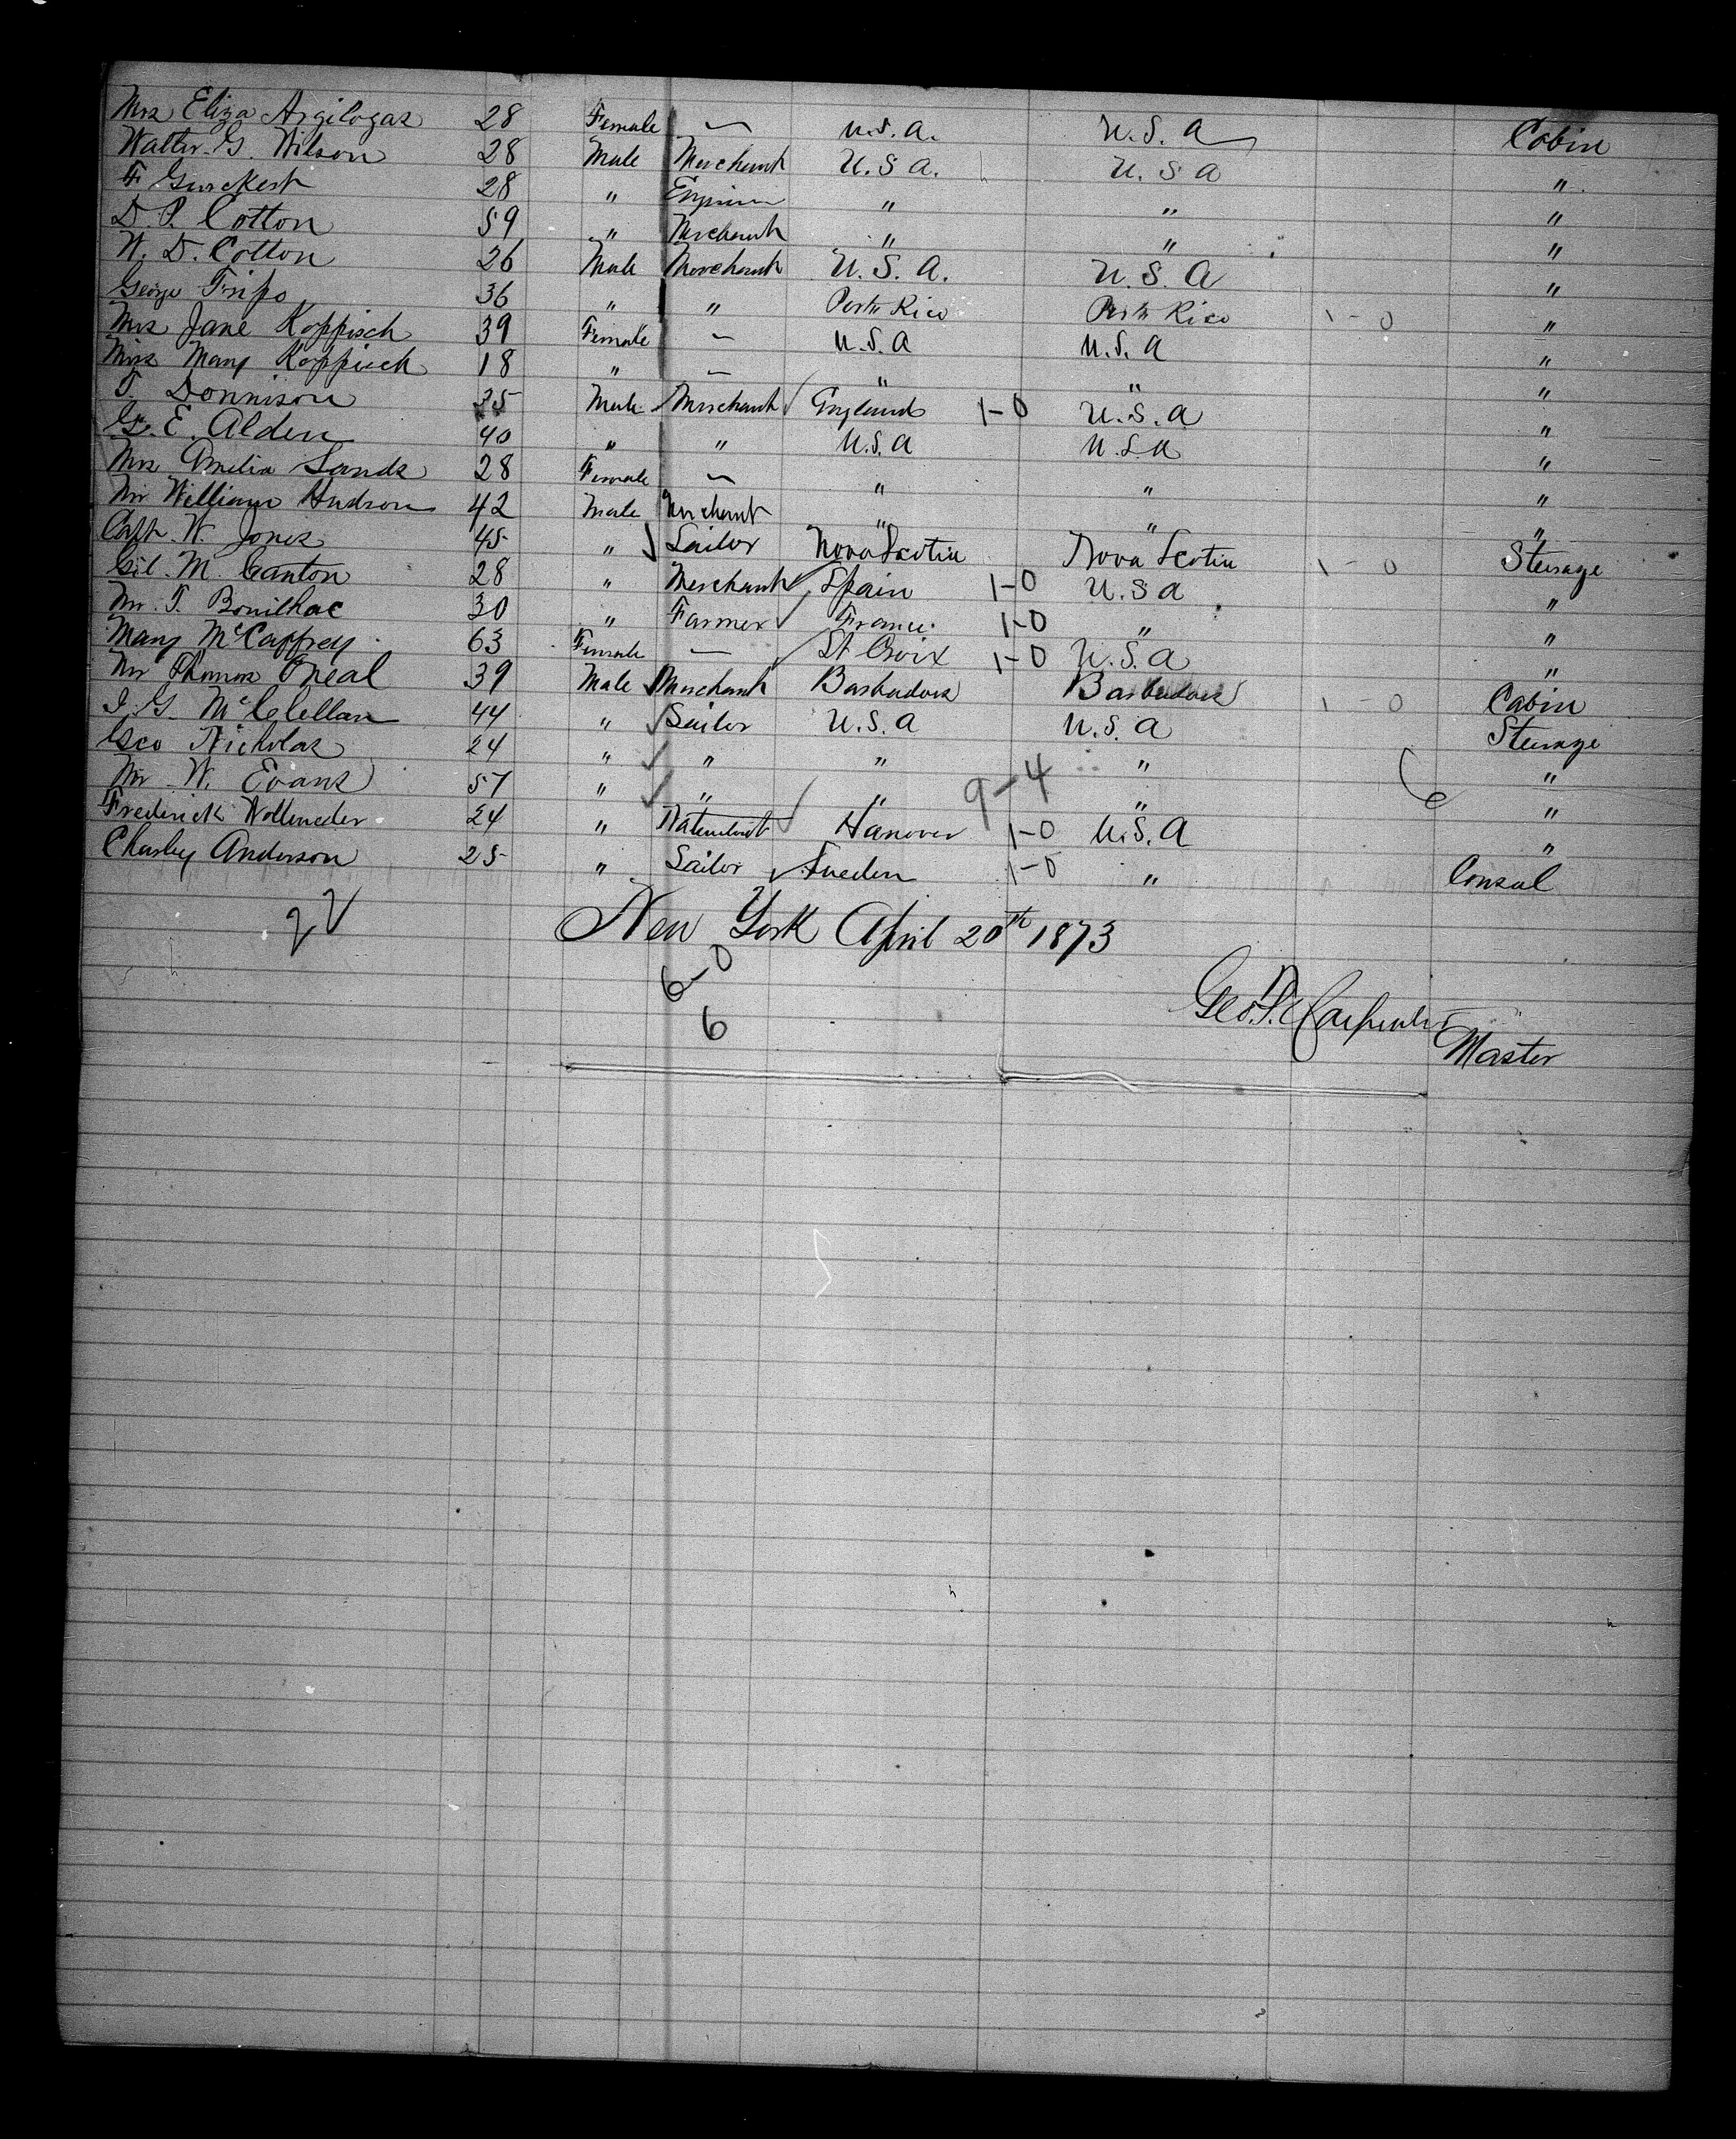 Mrs Eliza Argilogas 28 Female — U.S.A. U.S.A Cabin
Walter G. Wilson 28 Male Merchant U.S.A. U.S.A "
F 28 " " " "
D. P. Cotton 59 " Merchant " " "
W. D. Cotton 26 Male Merchant U.S.A. U.S.A "
George 36 " " Porto Rico Porto Rico 1-0 "
Mrs Jane Koppisch 39 Female — U.S.A U.S.A "
Miss Mary Koppisch 18 " — " " "
T. Donnison 35 Male Merchant England 1-0 U.S.A "
G. E. Alden 40 " " U.S.A U.S.A "
Mrs Amelia Sands 28 Female — " " "
Mr William Hudson 42 Male Merchant " " "
Capt. W. Jones 45 " Sailor Nova Scotia Nova Scotia 1-0 Steerage
Gil. M. Canton 28 " Merchant Spain 1-0 U.S.A "
Mr. T. Bonilhac 30 " Farmer France 1-0 " "
Mary McCaffrey 63 Female — St Croix 1-0 U.S.A "
Mr Thomas Oneal 39 Male Merchant Barbadoes Barbadoes 1-0 Cabin
J. G. McClellan 44 " Sailor U.S.A U.S.A Steerage
Geo Nicholas 24 " " " " "
Mr W. Evans 57 " " " 9-4 " "
Frederick 24 " Hanover 1-0 U.S.A "
Charley Anderson 25 " Sailor Sweden 1-0 " Consul
22
New York April 20th 1873
6-0
6
Geo. Carpenter
Master